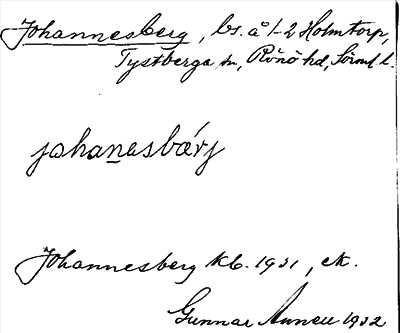 Johannesberg, bs. å 1-2 Holmtorp,
Tystberga sn, Rönö hd, Sörml. l.
johanesbærj
Johannesberg kb. 1931, ek.
Gunnar 1932